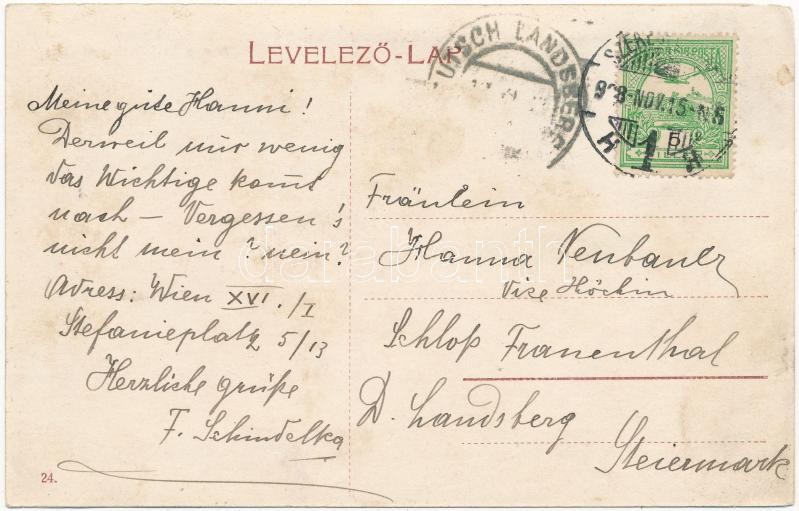 LEVELEZŐ-LAP
UTSCH LANDSBERG
908-NOV.15-N
Meine gute Hanni!
Derweil nur wenig
das Wichtige komt
nach – Vergessen's
nicht mein? nein?
Adress: Wien XVI./I
Stefanieplatz 5/13
Herzliche grüße
F. Schindelka
24.
Fräulein
Hanna Neubauer
Vize Köchin
Schloß Frauenthal
D. Landsberg
Steiermark
darabanth